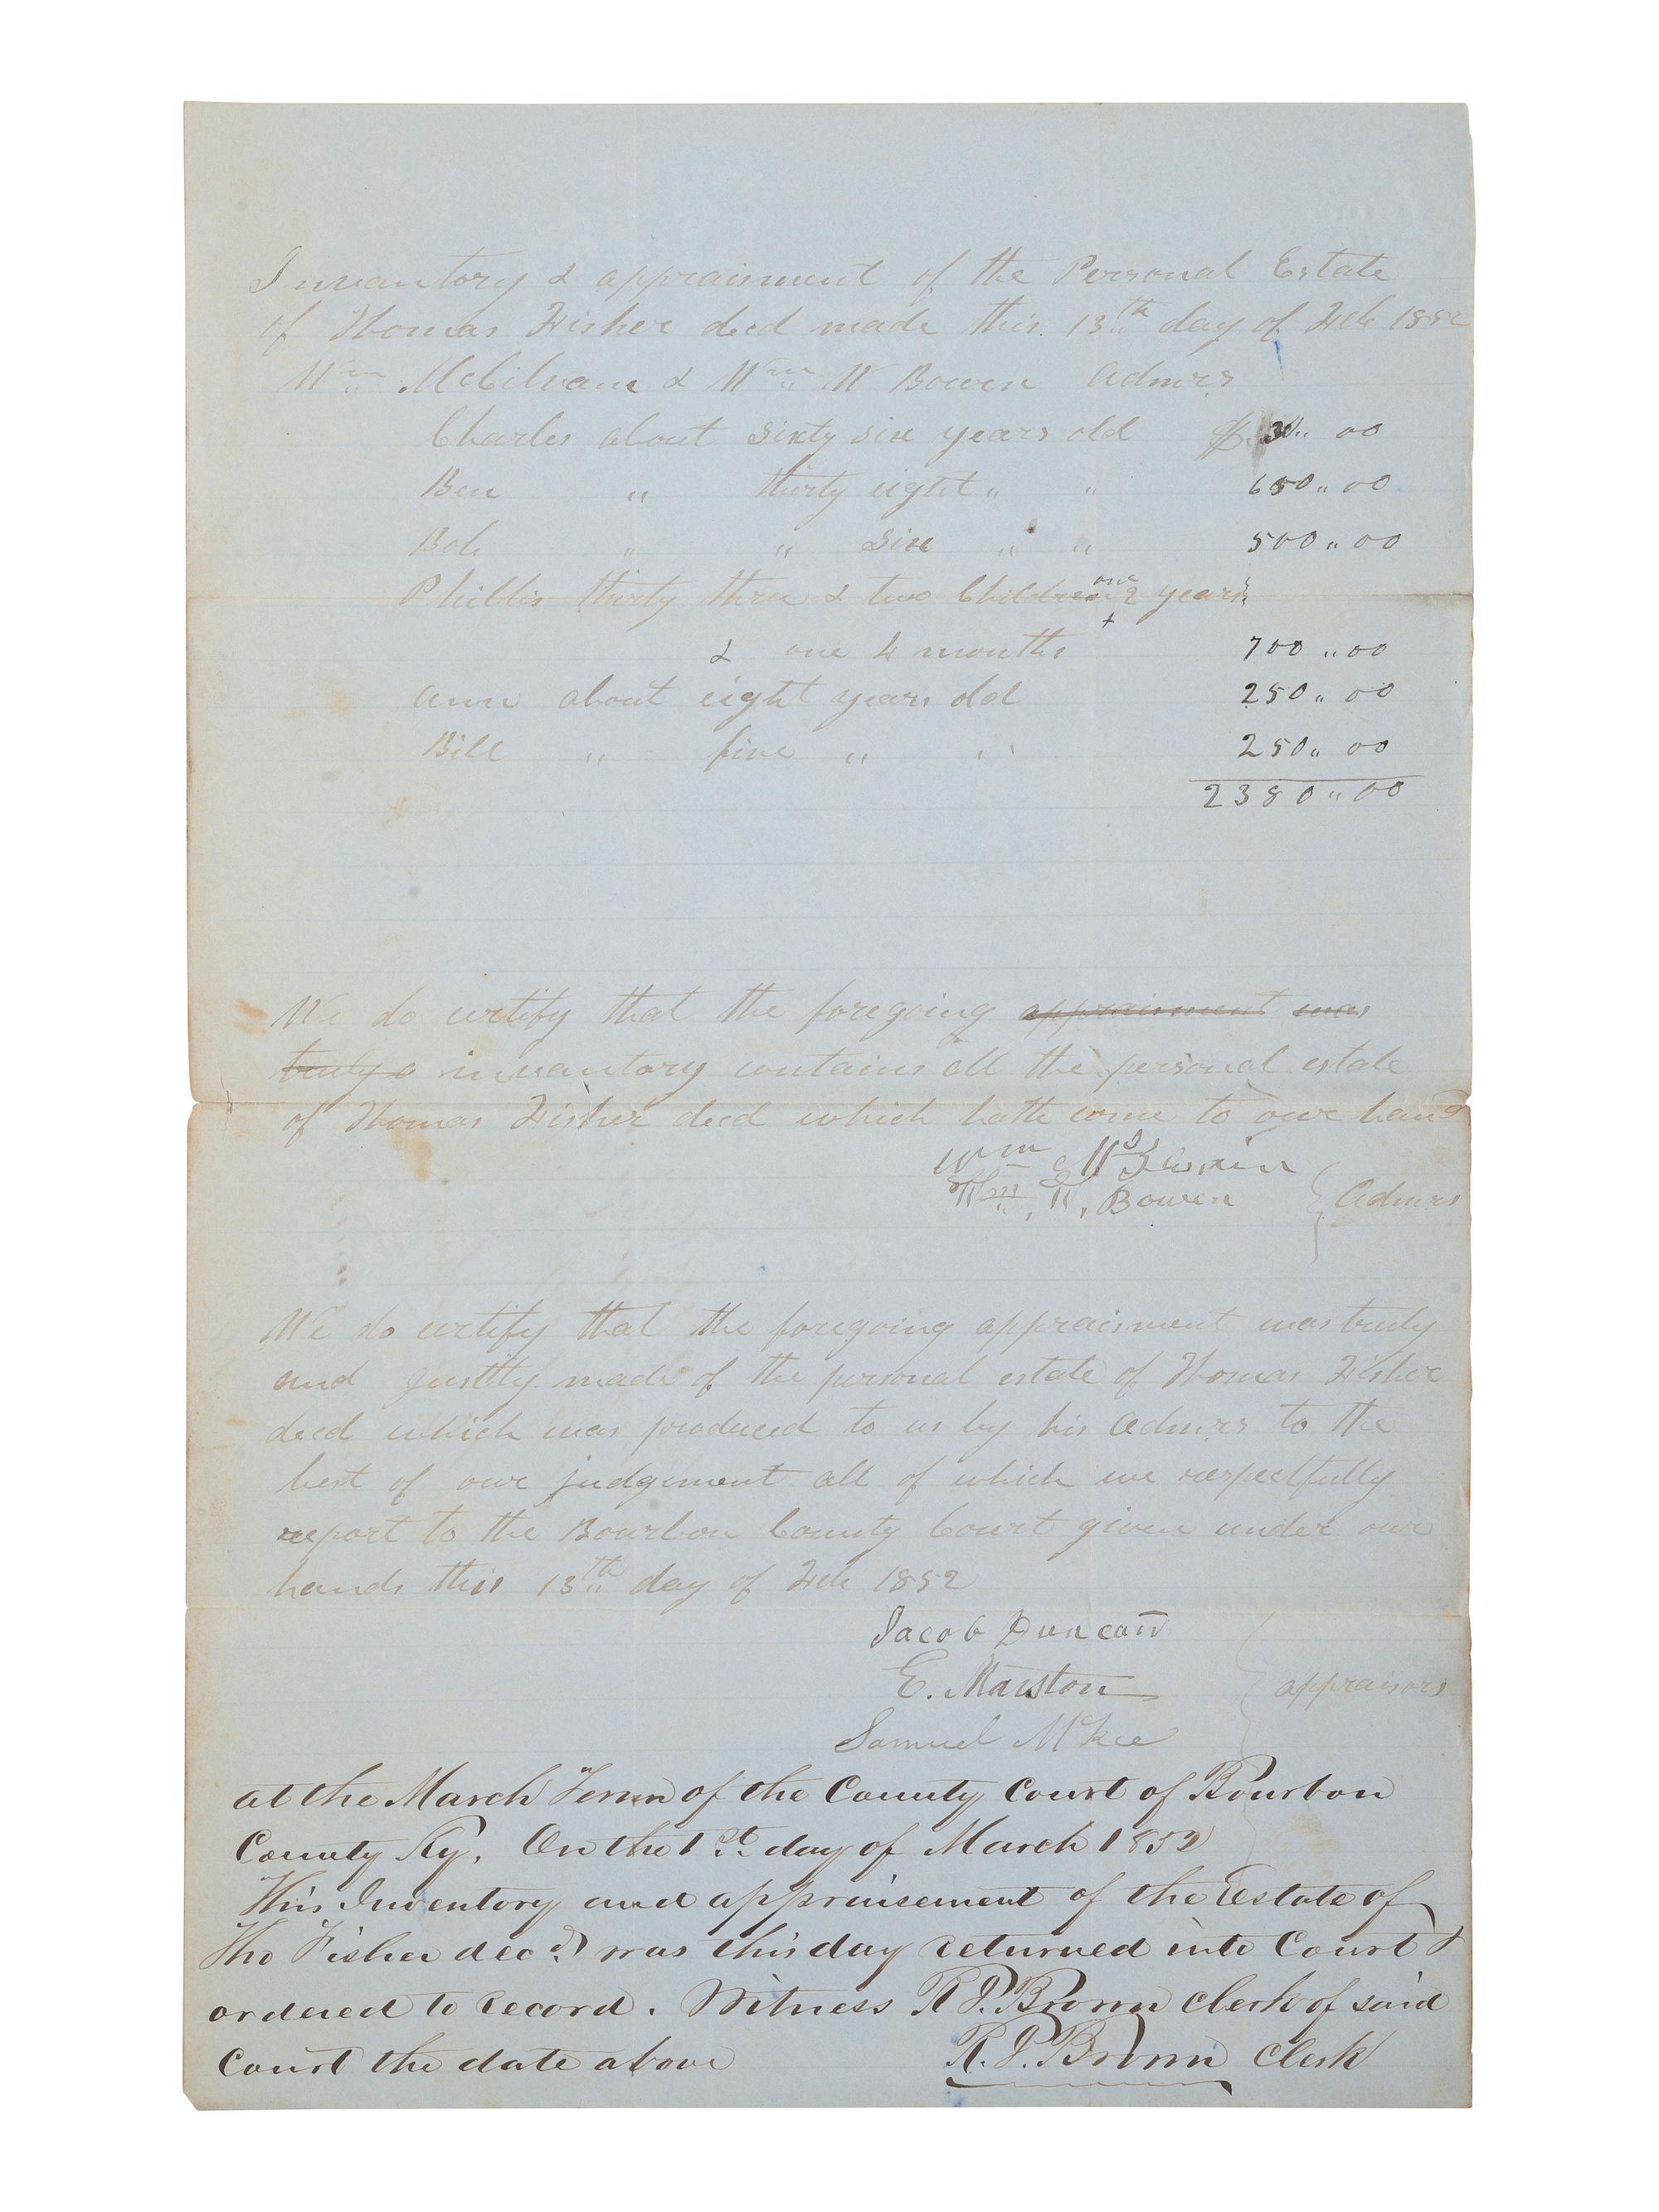 Invantory & appraisment of the Personal Estate
of Thomas Fisher decd made this 13th day of Feb 1852
Wm McCilvain & Wm W Bowen Admrs
Charles about sixty six years old $ 30.. 00
Ben " thirty eight " " 650.. 00
Bob " " six " " 500.. 00
Phillis thirty three & two Children one 2 years
& one 4 months 700.. 00
Ann about eight years old 250.. 00
Bill " five " " 250.. 00
2380.. 00
We do certify that the foregoing appraisment was
truly a invantory contains all the personal estate
of Thomas Fisher decd which hath come to our hand
Wm
Wm. W. Bowen Admrs
We do certify that the foregoing appraisment was truly
and justly made of the personal estate of Thomas Fisher
decd which was produced to us by his Admrs to the
best of our judgement all of which we respectfully
report to the Bourbon County Court given under our
hands this 13th day of Feb 1852
Jacob Duncan
E. Marston appraisors
Samuel McKee
at the March Term of the County Court of Bourbon
County Ky. On the 1st day of March 1852
This Inventory and appraisement of the Estate of
Tho Fisher decd was this day returned into Court &
ordered to record. Witness R. P. Brown clerk of said
Court the date above R. P. Brown Clerk